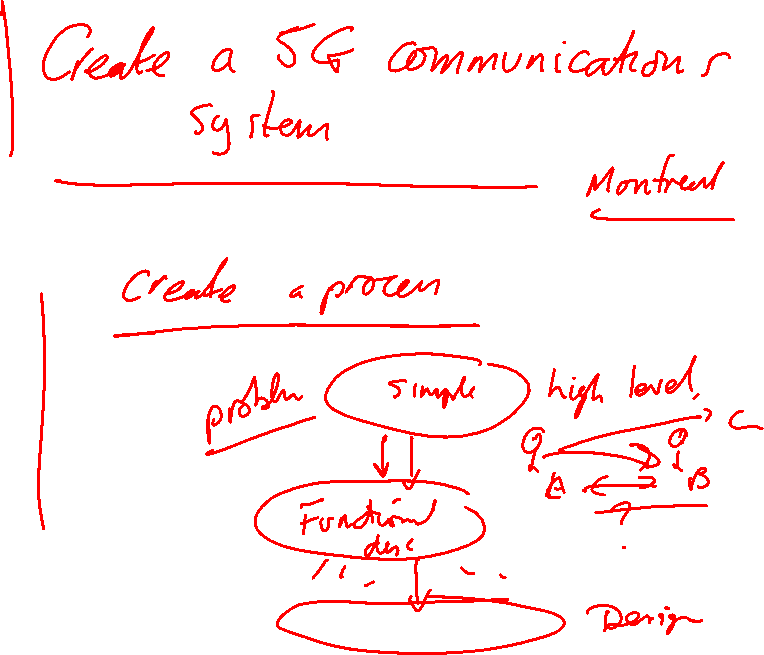 Create a 5G communications
system
Montreal
Create a process
problem
simple
high level,
C
A
B
Functional
desc
Design